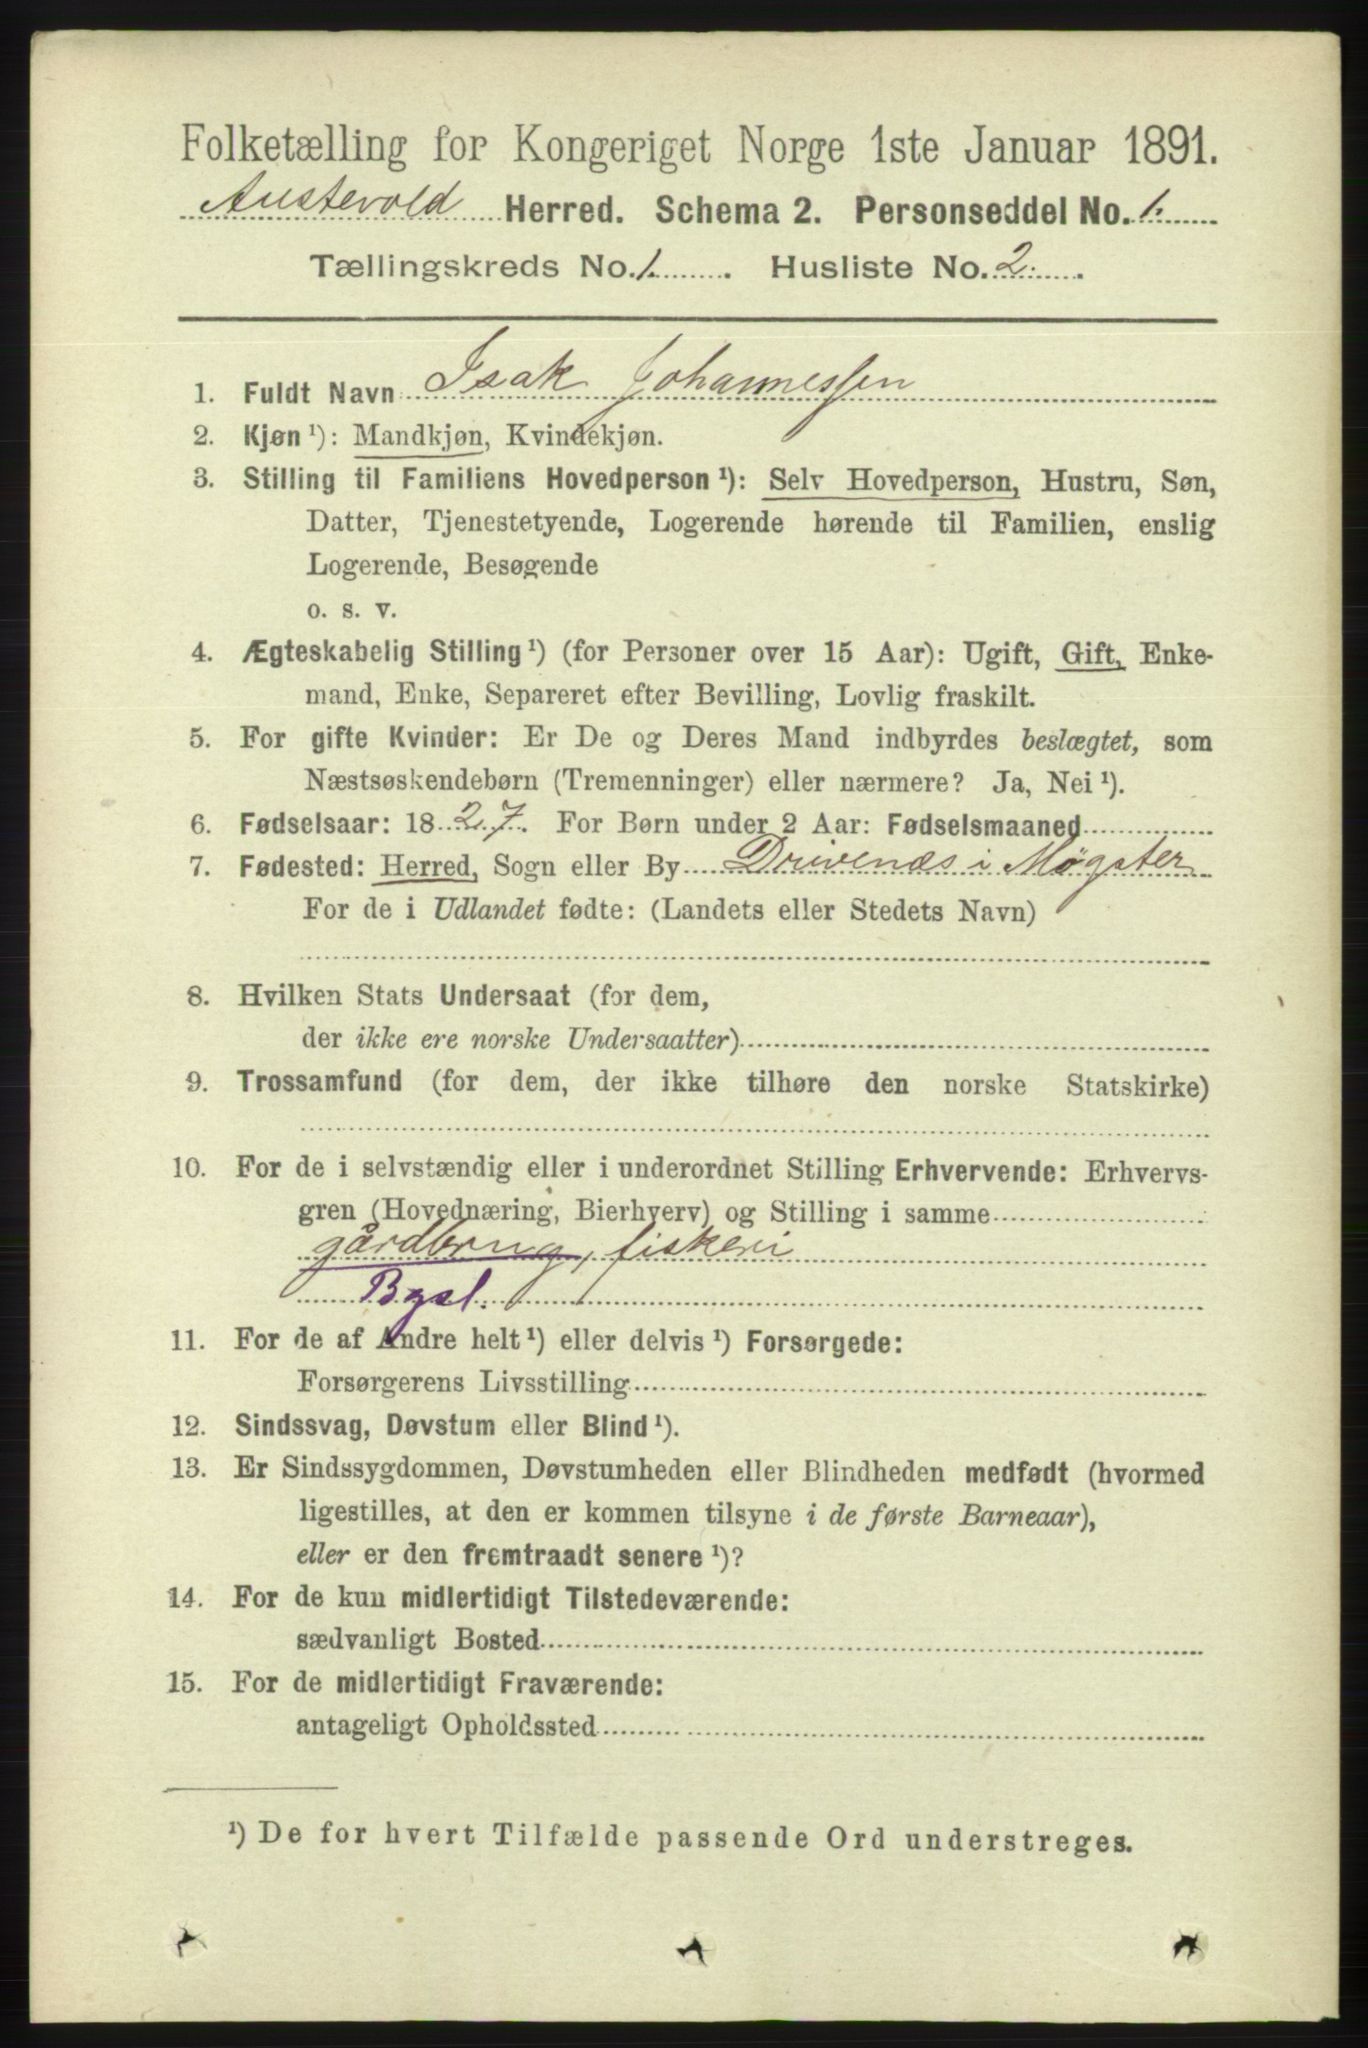 Folketælling for Kongeriget Norge 1ste Januar 1891.
Austevold Herred. Schema 2. Personseddel No. 1.
Tællingskreds No. 1. Husliste No. 2.
1. Fuldt Navn Isak Johannessen
2. Kjøn¹): Mandkjøn, Kvindekjøn.
3. Stilling til Familiens Hovedperson¹): Selv Hovedperson, Hustru, Søn,
Datter, Tjenestetyende, Logerende hørende til Familien, enslig
Logerende, Besøgende
o. s. v.
4. Ægteskabelig Stilling¹) (for Personer over 15 Aar): Ugift, Gift, Enke-
mand, Enke, Separeret efter Bevilling, Lovlig fraskilt.
5. For gifte Kvinder: Er De og Deres Mand indbyrdes beslægtet, som
Næstsøskendebørn (Tremenninger) eller nærmere? Ja, Nei¹).
6. Fødselsaar: 1827. For Børn under 2 Aar: Fødselsmaaned
7. Fødested: Herred, Sogn eller By Drivenæs i Møgster
For de i Udlandet fødte: (Landets eller Stedets Navn)
8. Hvilken Stats Undersaat (for dem,
der ikke ere norske Undersaatter)
9. Trossamfund (for dem, der ikke tilhøre den norske Statskirke)
10. For de i selvstændig eller i underordnet Stilling Erhvervende: Erhvervs-
gren (Hovednæring, Bierhverv) og Stilling i samme
gårdbrug, fiskeri
Bgsl.
11. For de af Andre helt¹) eller delvis¹) Forsørgede:
Forsørgerens Livsstilling
12. Sindssvag, Døvstum eller Blind¹).
13. Er Sindssygdommen, Døvstumheden eller Blindheden medfødt (hvormed
ligestilles, at den er kommen tilsyne i de første Barneaar),
eller er den fremtraadt senere¹)?
14. For de kun midlertidigt Tilstedeværende:
sædvanligt Bosted
15. For de midlertidigt Fraværende:
antageligt Opholdssted
¹) De for hvert Tilfælde passende Ord understreges.